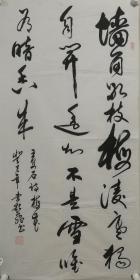 墻角数枝梅凌寒独
自開遥知不是雪唯
有暗香来
王安石诗梅花